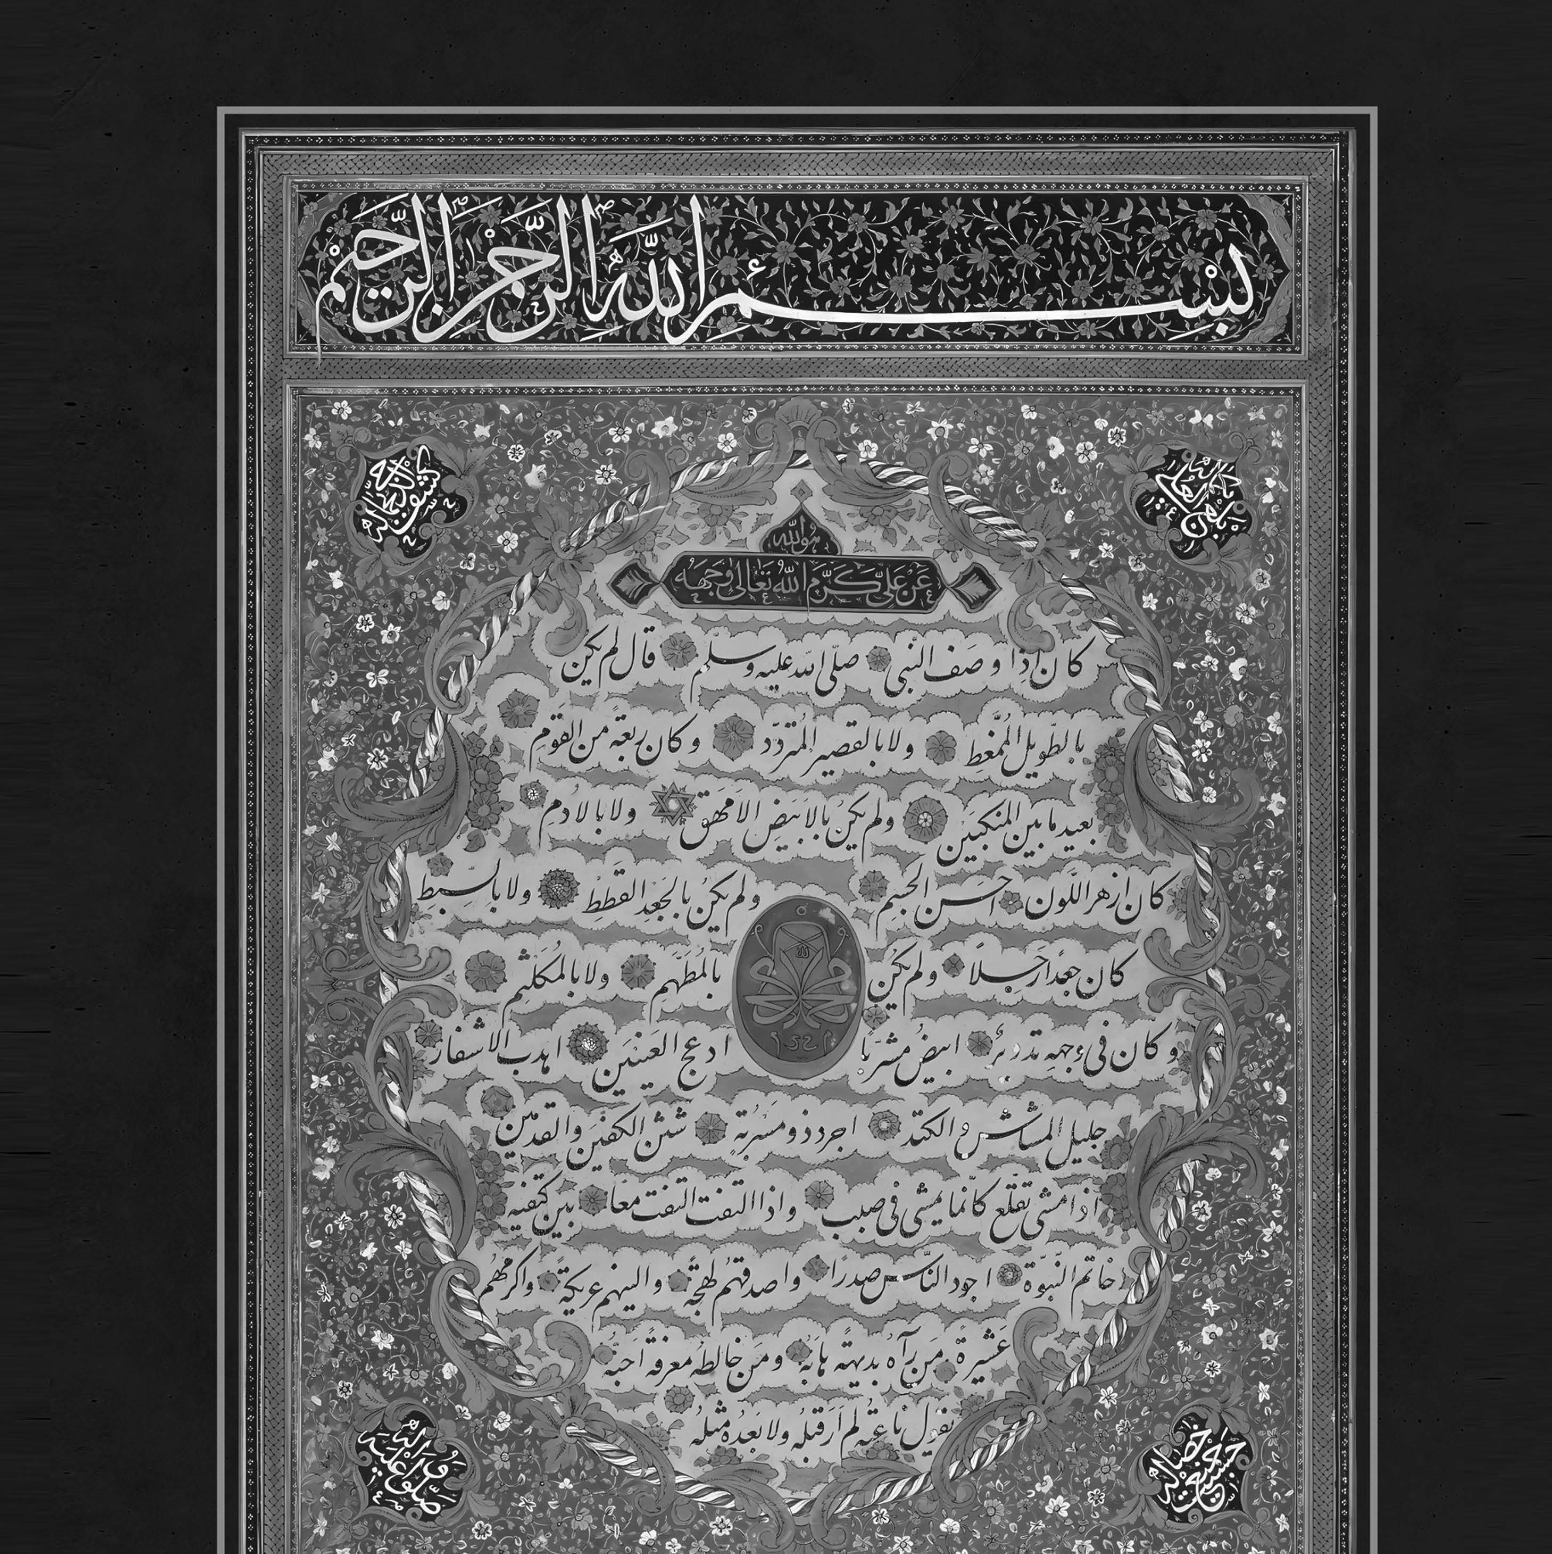 بسم الله الرحمن الرحيم
بلغ العلى بكماله
كشف الدجى بجماله
هو الله
عن علي كرم الله تعالى وجهه
كان اذا وصف النبي صلى الله عليه وسلم قال لم يكن
بالطويل الممغط ولا بالقصير المتردد وكان ربعة من القوم
بعيد ما بين المنكبين ولم يكن بالابيض الامهق ولا بالادم
كان ازهر اللون حسن الجسم ولم يكن بالجعد القطط ولا بالسبط
كان جعدا رجلا ولم يكن بالمطهم ولا بالمكلثم
وكان في وجهه تدوير ابيض مشربا ادعج العينين اهدب الاشفار
جليل المشاش والكتد اجرد ذو مسربة شثن الكفين والقدمين
اذا مشى تقلع كانما يمشي في صبب واذا التفت التفت معا بين كتفيه
خاتم النبوة اجود الناس صدرا واصدقهم لهجة والينهم عريكة واكرمهم
عشيرة من رآه بديهة هابه ومن خالطه معرفة احبه
يقول ناعته لم ار قبله ولا بعده مثله
حسنت جميع خصاله
صلوا عليه وآله